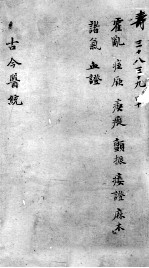 壽 三十八 三十九
霍亂 疰 痎 瘧 顫振 痿證 麻木
諸氣 血證
古今醫統